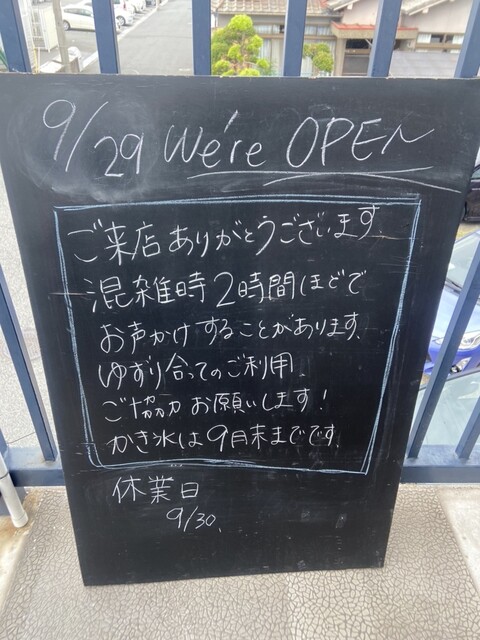 9/29 We're OPEN
ご来店ありがとうございます。
混雑時2時間ほどで
お声かけすることがあります。
ゆずり合ってのご利用、
ご協力お願いします!
かき氷は9月末までです。
休業日
9/30、